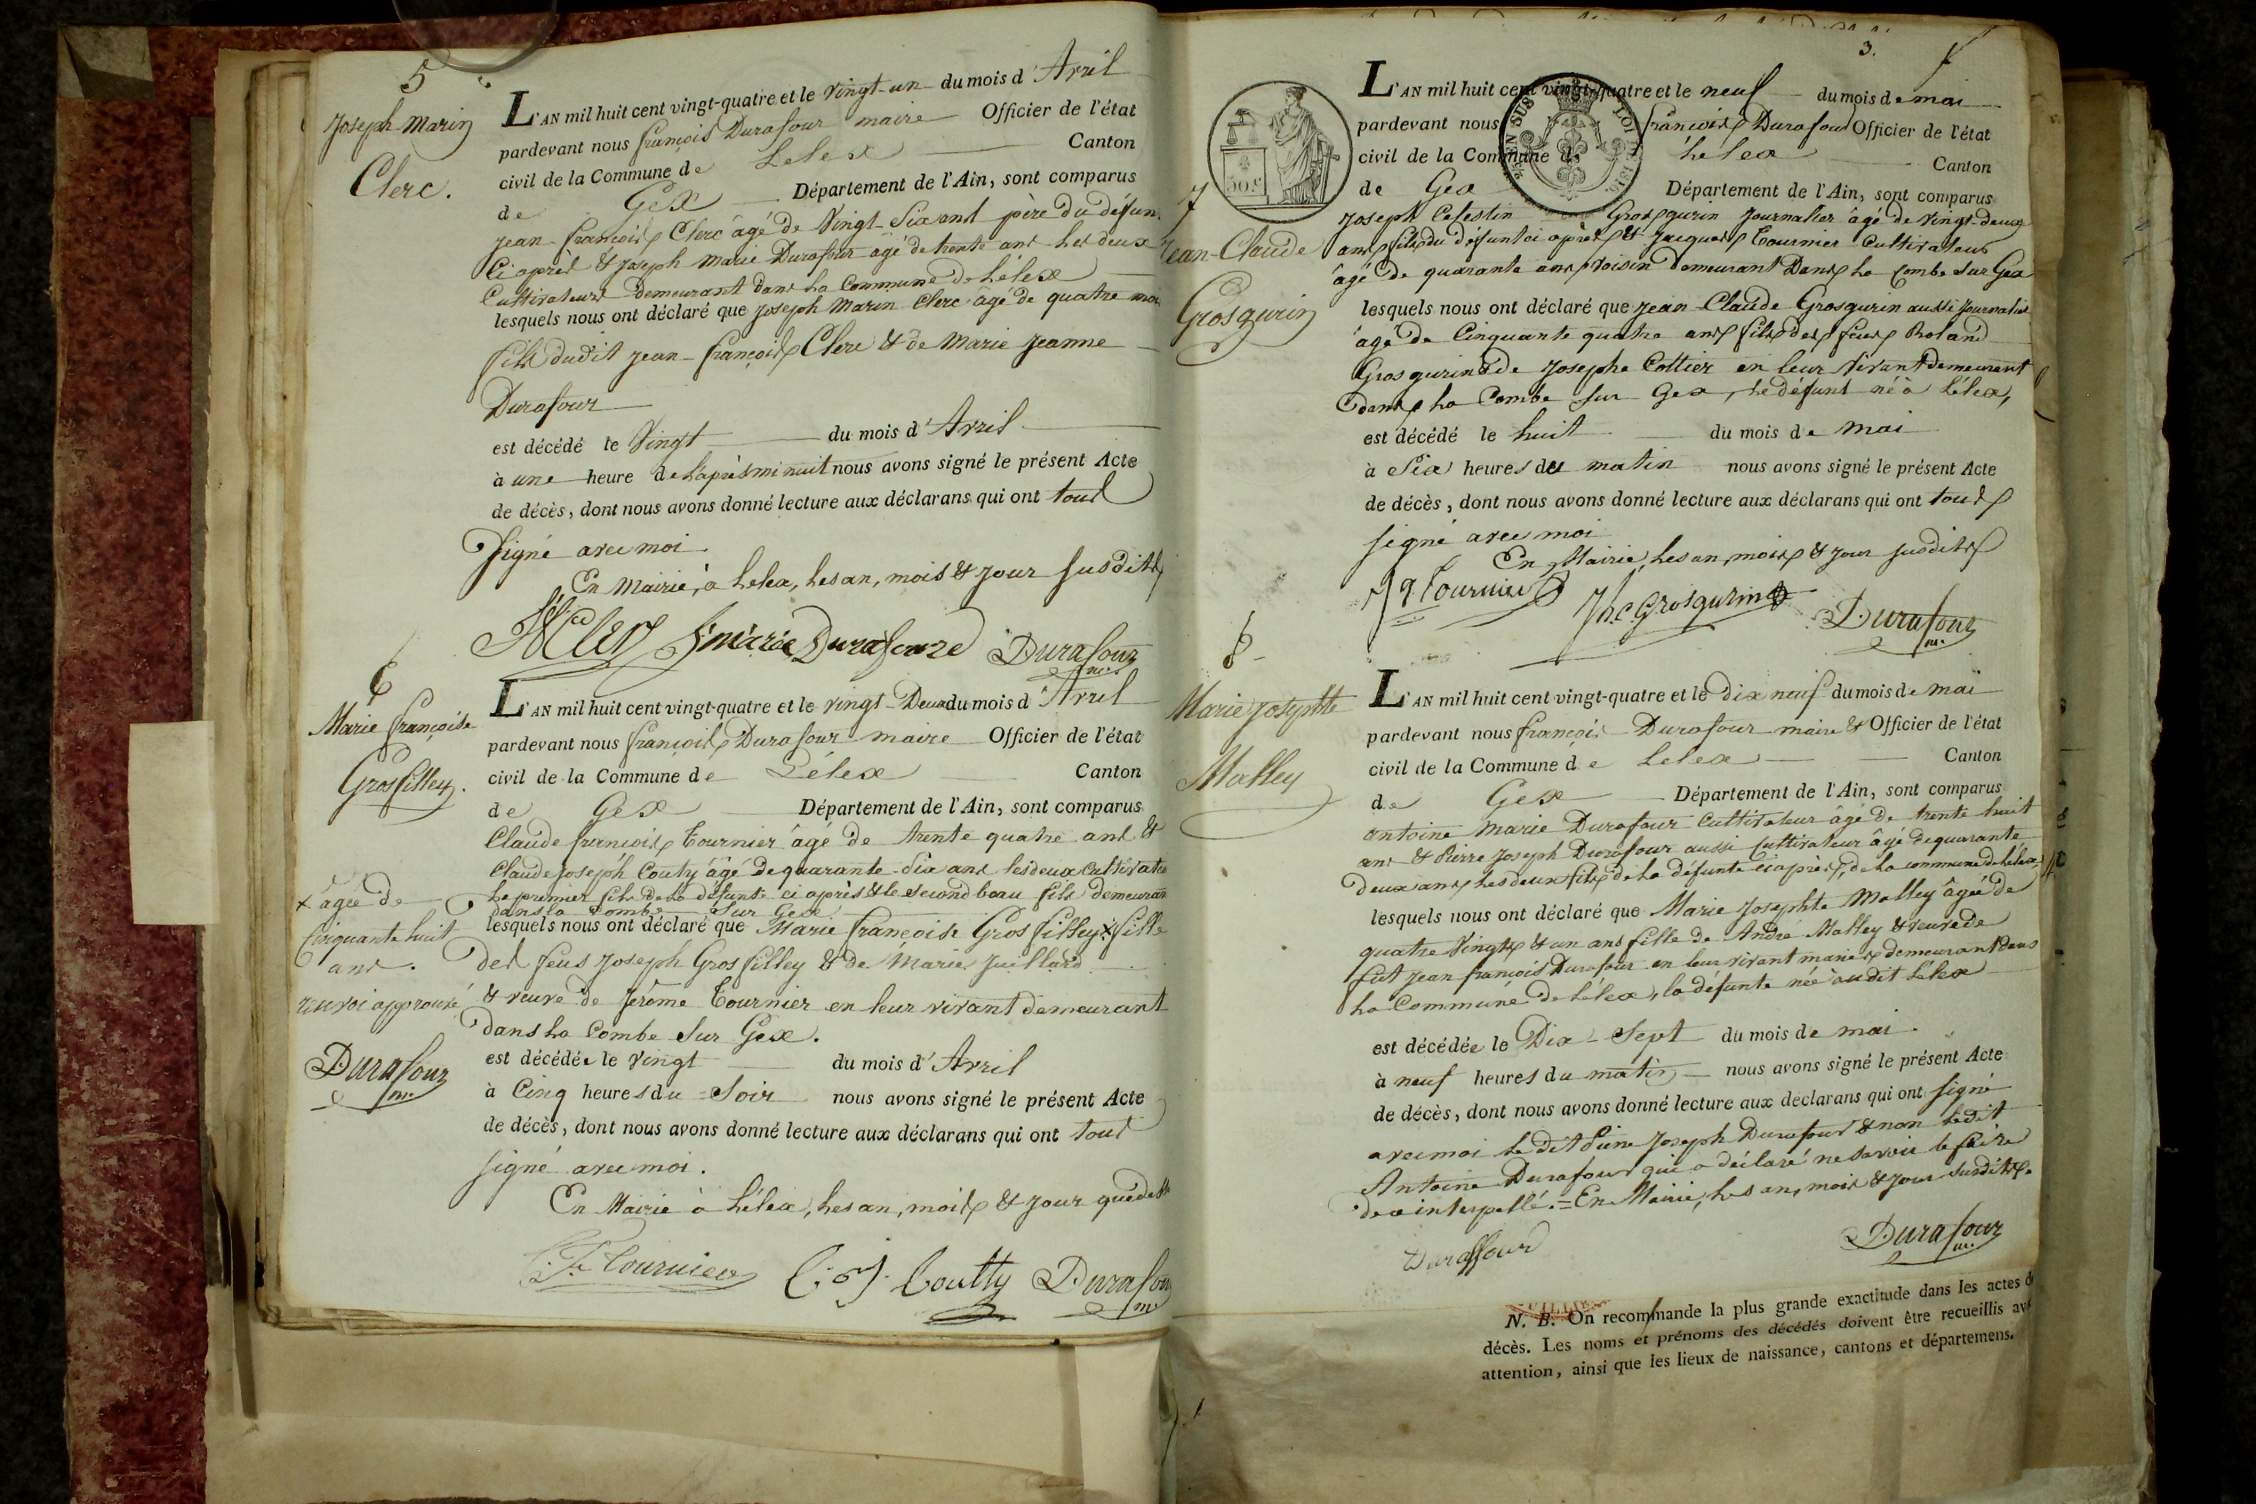 5
Joseph Marin
Clerc.
L'AN mil huit cent vingt-quatre et le vingt-un du mois d'Avril
pardevant nous françois Durafour maire Officier de l'état
civil de la Commune de Lelex Canton
de Gex Département de l'Ain, sont comparus
jean-françois Clerc âgé de Vingt-Six ans père du défun
Ci après & joseph marie Durafour âgé de trente ans les deux
Cultivateurs demeurant dans la Commune de Lélex
lesquels nous ont déclaré que joseph Marin Clerc âgé de quatre moi
fils dudit jean-françois Clerc & de Marie jeanne
Durafour
est décédé le Vingt du mois d'Avril
à une heure de L'aprèsminuit nous avons signé le présent Acte
de décès, dont nous avons donné lecture aux déclarans qui ont tous
signé avec moi.
En Mairie, à Lelex, les an, mois & jour susdits
JF Clerc J marie Durafour Durafour
m.
6
Marie françoise
Grosfilley.
L'AN mil huit cent vingt-quatre et le vingt-Deux du mois d'Avril
pardevant nous françois Durafour maire Officier de l'état
civil de la Commune de Lélex Canton
de Gex Département de l'Ain, sont comparus
Claude françois Tournier âgé de trente quatre ans &
Claude joseph Couty âgé de quarante-Six ans les deux Cultivate
Le premier fils de la défunte ci après & le second beau fils demeuran
dans la Combe Sur Gex
lesquels nous ont déclaré que Marie françoise Gros filley x fille
x âgée de
Cinquante huit
ans.
renvoi approuvé
Durafour
m.
des feus joseph Gros filley & de Marie Juillard
& veuve de jerôme Tournier en leur vivant demeurant
dans La Combe Sur Gex.
est décédée le vingt du mois d'Avril
à Cinq heures du Soir nous avons signé le présent Acte
de décès, dont nous avons donné lecture aux déclarans qui ont tous
signé avec moi.
En Mairie à Lélex, les an, mois & jour que dess
C. F. Tournier C. J. Coutty Durafour
m
3.
7
Jean-Claude
Grosgurin
L'AN mil huit cent vingt-quatre et le neuf du mois de mai
pardevant nous françois Durafour Officier de l'état
civil de la Commune de Lélex Canton
de Gex Département de l'Ain, sont comparus
joseph Celestin Grosgurin journalier âgé de vingt-deux
ans fils du défunt ci après & jacques Tournier Cultivateur
âgé de quarante ans voisin demeurant dans la Combe Sur Gex
lesquels nous ont déclaré que jean-Claude Grosgurin aussi journalier
âgé de Cinquante quatre ans fils des feus Roland
Grosgurin & de josephe Cottier en leur vivant demeurant
dans La Combe Sur Gex, le défunt né à Lélex,
est décédé le huit du mois de Mai
à Six heures du matin nous avons signé le présent Acte
de décès, dont nous avons donné lecture aux déclarans qui ont tous
signé avec moi
En Mairie, les an, mois & jour susdits
Jq Tournier Jh C Grosgurin Durafour
m.
8
Marie josephte
Malley
L'AN mil huit cent vingt-quatre et le dix neuf du mois de mai
pardevant nous françois Durafour maire & Officier de l'état
civil de la Commune de Lelex Canton
de Gex Département de l'Ain, sont comparus
antoine marie Durafour Cultivateur âgé de trente huit
ans & Pierre joseph Durafour aussi Cultivateur âgé de quarante
deux ans les deux fils de la défunte ci après, de la commune de Lélex,
lesquels nous ont déclaré que Marie josephte Malley âgée de
quatre Vingts & un ans fille de André Malley & veuve de
fut jean françois Durafour en leur vivant mariés demeurant dans
La Commune de Lélex, la défunte née audit Lélex
est décédée le Dix-Sept du mois de mai.
à neuf heures du matin nous avons signé le présent Acte
de décès, dont nous avons donné lecture aux déclarans qui ont signé
avec moi le dit Pierre joseph Durafour & non ledit
Antoine Durafour qui a déclaré ne savoir le faire
de ce interpellé. = En Mairie, les an, mois & jour susdits.
Duraffour Durafour
m.
N. B. On recommande la plus grande exactitude dans les actes d
décès. Les noms et prénoms des décédés doivent être recueillis av
attention, ainsi que les lieux de naissance, cantons et départemens.